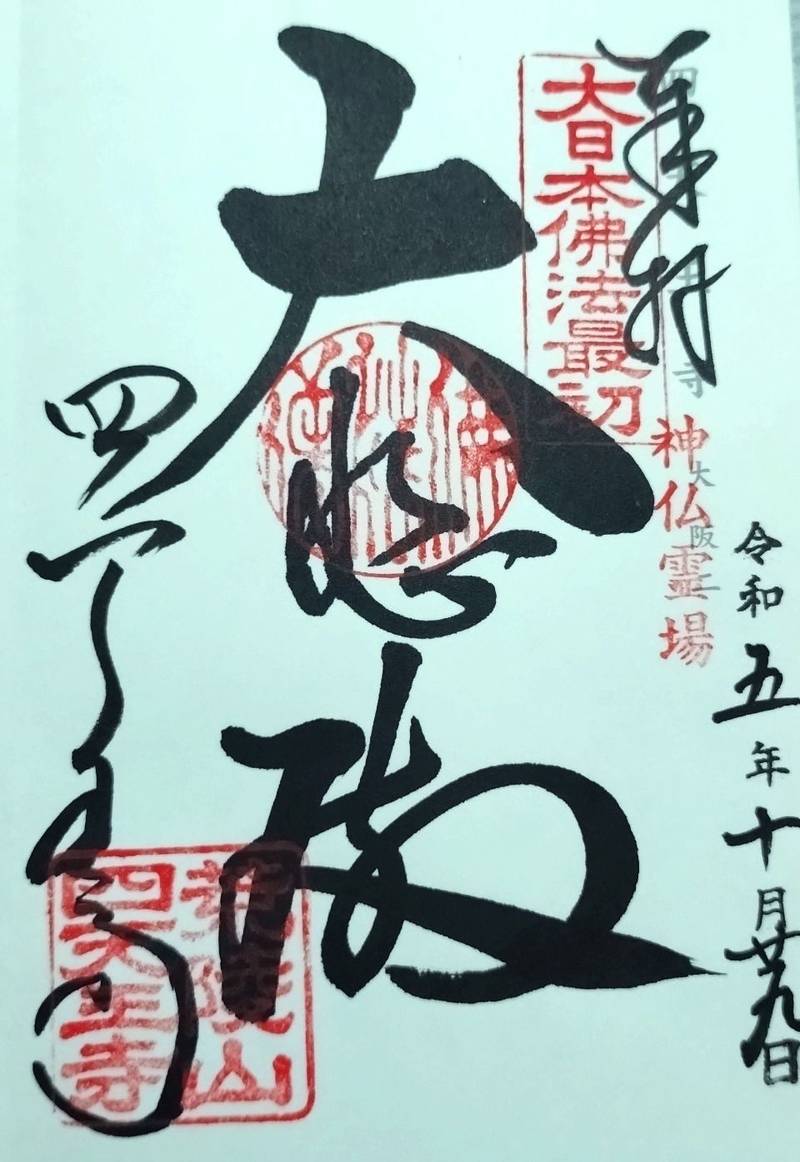 奉拝
大日本佛法最初
神仏霊場
令和五年十月廿九日
大悲殿
四天王寺
荒陵山
四天王寺